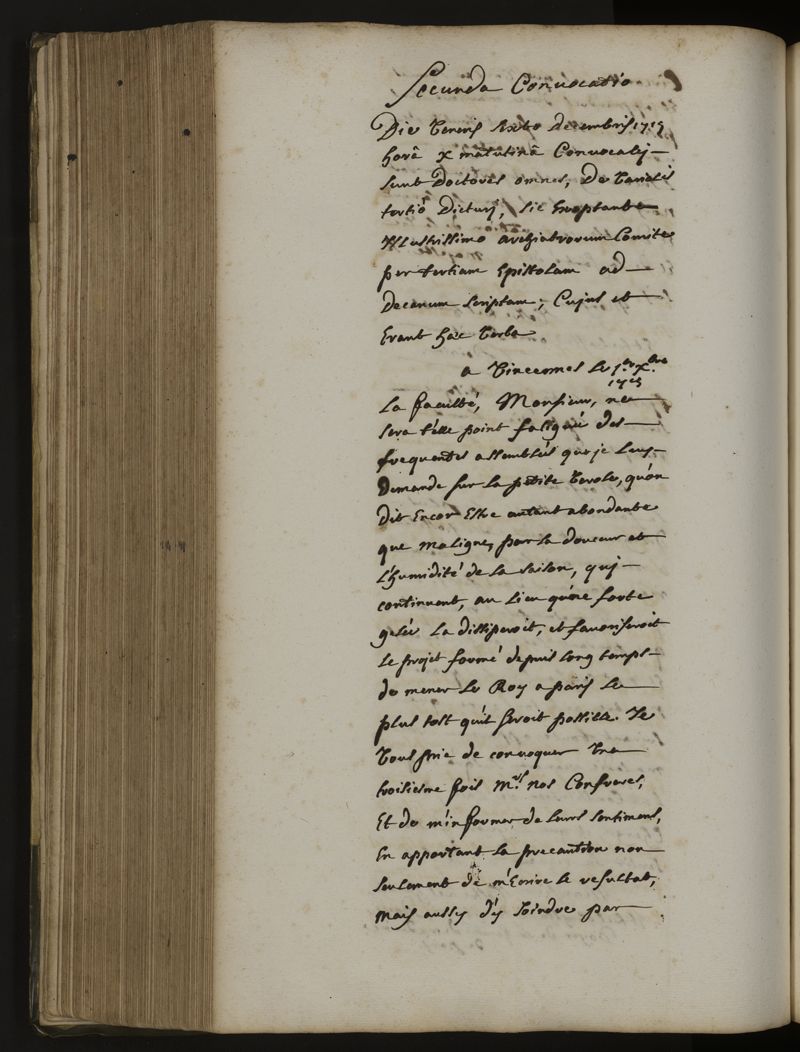 Secunda Convocatio
Die Veneris sexto decembris 1715
horâ x matutinâ Convocatj
sunt Doctores omnes, De Variolis
tertiò Dicturj, sic exoptante
Illustrissimo archiatrorum Comite
per tertiam Epistolam ad
Decanum scriptam, Cujus et
Erant hæc Verba
a Vincennes le 1er xbre
1715
La faculté, Monsieur, ne
sera t'elle point fatiguée des
frequentes assemblées que je leur
Demande sur la petite Verole, qu'on
Dit Encor Estre autant abondante
que maligne, par la douceur et
L'humidité de la saison, quj
continuent, au Lieu qu'une forte
gelée La dissiperoit, et favoriseroit
Le projet formé depuis long temps
de mener Le Roy a paris Le
plus tost qu'il seroit possible. Je
Vous prie de convoquer Une
troisiesme fois Mrs. nos Confreres,
Et de m'informer de leurs sentimens,
En apportant La precaution non
seulement de m'Ecrire Le resultat,
Mais aussy d'y Joindre par